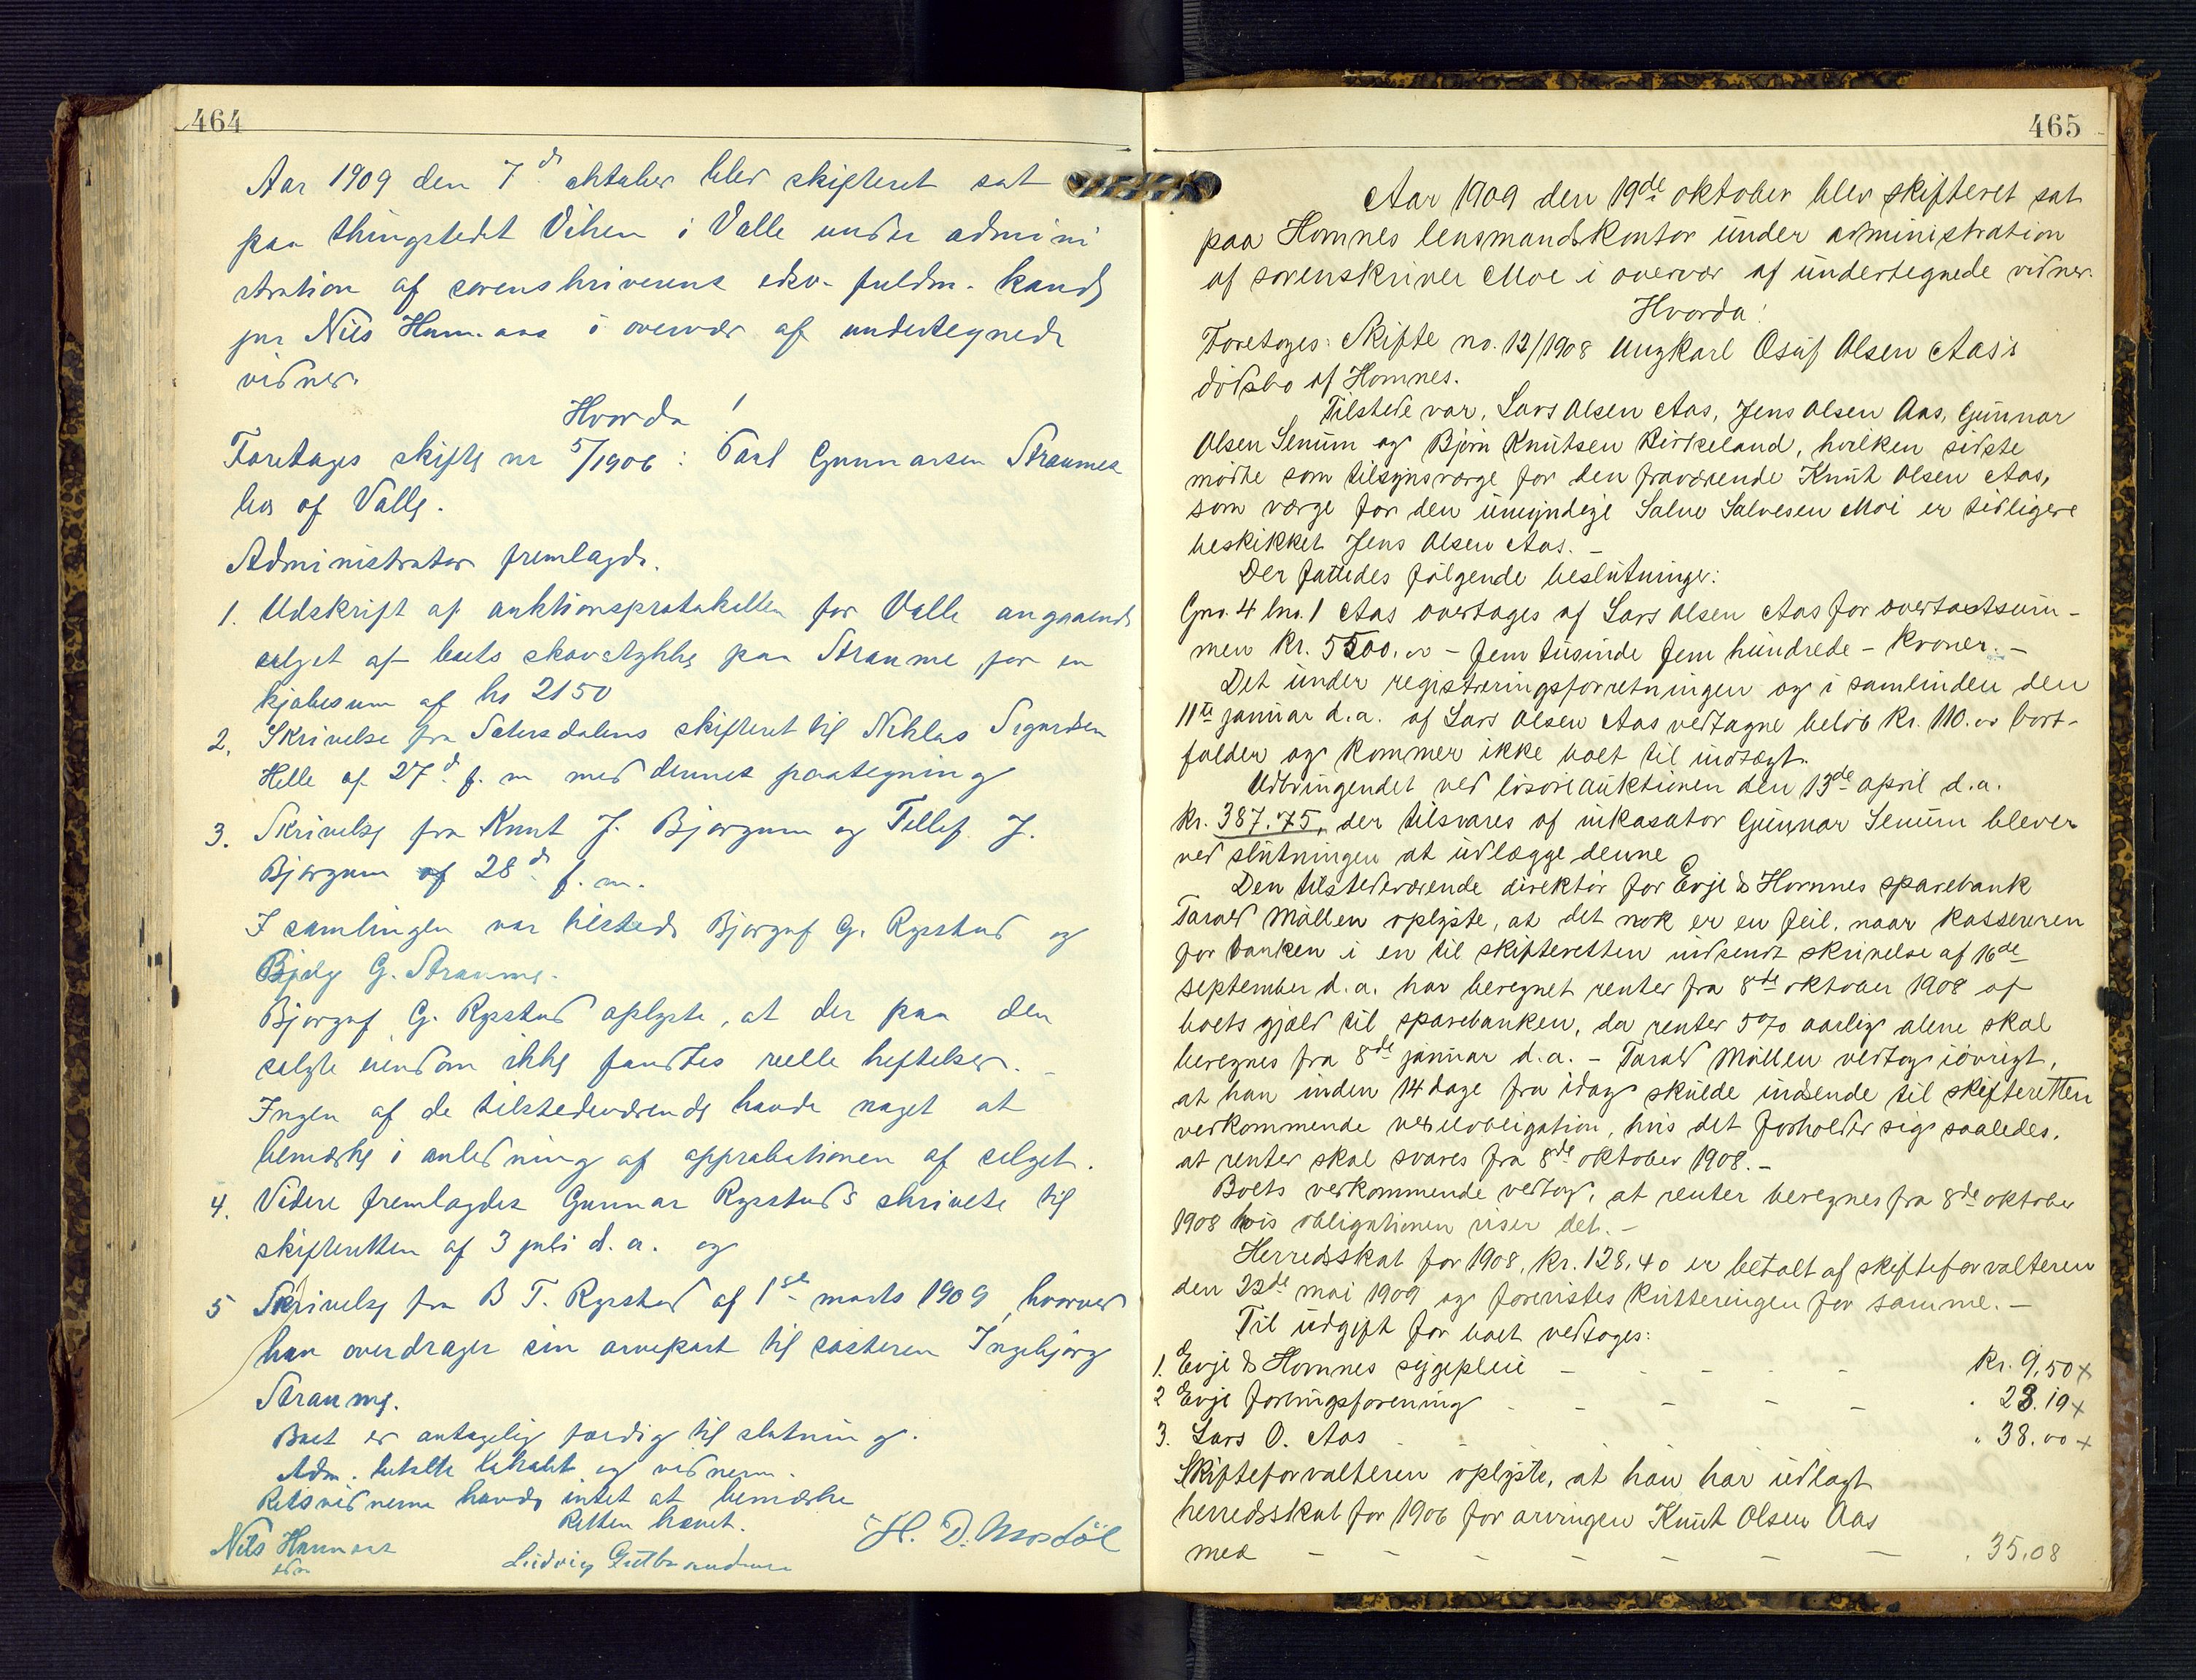 464
Aar 1909 den 7de oktober blev skifteret sat
paa thingstedet Viken i Valle under admini
stration af sorenskriverens edsv. fuldm. kand
jur Nils Hannaas i overvær af undertegnede
vidner.
Hvorda!
Foretages skifte nr 5/1906: Paal Gunnarsen Straumes
bo af Valle.
Administrator fremlagde.
1. Udskrift af auktionsprotokollen for Valle angaaende
salget af boets skovstykke paa Straume for en
kjøbesum af kr 2150
2. Skrivelse fra Sætersdalens skifteret til Niklas Sigurdsen
Helle af 27d. f. m med dennes paategning
3. Skrivelse fra Knut J. Bjørgum og Tellef J.
Bjørgum af 28d. f. m.
I samlingen var tilstede Bjørguf G. Rysstad og
G. Straume.
Bjørguf G. Rysstad oplyste, at der paa den
solgte eiendom ikke fandtes reelle heftelser. –
Ingen af de tilstedeværende havde noget at
bemærke i anledning af approbationen af salget.
4. Videre fremlagdes Gunnar Rysstads skrivelse til
skifteretten af 3 juli d. a. og
5 Skrivelse fra B T. Rysstad af 1ste marts 1909, hvorved
han overdrager sin arvepart til søsteren Ingebjørg
Straume.
Boet er antagelig færdig til slutning.
Adm. betalte lokalet og vidnerne.
Retsvidnerne havde intet at bemærke
Retten hævet.
Nils Hannaas
edsv
Ludvig Gulbrandsen
H. D. Mosdøl
465
Aar 1909 den 19de oktober blev skifteret sat
paa Hornnes lensmandskontor under administration
af sorenskriver Moe i overvær af undertegnede vidner.
Hvorda!
Foretoges: Skifte no. 12/1908 Ungkarl Osuf Olsen Aas's
dødsbo af Hornnes.
Tilstede var, Lars Olsen Aas, Jens Olsen Aas, Gunnar
Olsen Senum og Björn Knutsen Kirkeland, hvilken sidste
mødte som tilsynsværge for den fraværende Knut Olsen Aas,
som værge for den umyndige Salve Salvesen Moi er tidligere
beskikket Jens Olsen Aas. –
Der fattedes følgende beslutninger:
Gno. 4 bno. 1 Aas overtages af Lars Olsen Aas for overtastsum-
men kr. 5500.00 – fem tusinde fem hundrede – kroner. –
Det under registreringsforretningen og i samlinden den
11te januar d.a. af Lars Olsen Aas vedtagne beløb kr. 110.00 bort-
falder og kommer ikke boet til indtægt.
Udbringendet ved løsøreauktionen den 13de april d.a.
kr. 387.75, der tilsvares af inkasator Gunnar Senum blever
ved slutningen at udlægge denne
Den tilstedeværende direktør for Evje & Hornnes sparebank
Tarald Møllen oplyste, at det nok er en feil, naar kassereren
for banken i en til skifteretten indsendt skrivelse af 16de
september d.a. har beregnet renter fra 8de oktober 1908 af
boets gjæld til sparebanken, da renter 5% aarlig alene skal
beregnes fra 8de januar d.a. – Tarald Møllen vedtog iøvrigt,
at han inden 14 dage fra idag skulde indsende til skifteretten
vedkommende obligation, hvis det forholder sig saaledes,
at renter skal svares fra 8de oktober 1908. –
Boets vedkommende vedtog, at renter beregnes fra 8de oktober
1908 hvis obligationen viser det. –
Herredsskat for 1908, kr. 128,40 er betalt af skifteforvalteren
den 22de mai 1909 og forevistes kvitteringen for samme. –
Til udgift for boet vedtoges:
1. Evje & Hornnes sygepleie – – – – – Kr. 9,50 x
2 Evje foringsforening – – – – – " 23.19 x
3. Lars O. Aas – – " 38.00 x
Skifteforvalteren oplyste, at han har udlagt
herredsskat for 1906 for arvingen Knut Olsen Aas
med – – – – – – – " 35,08